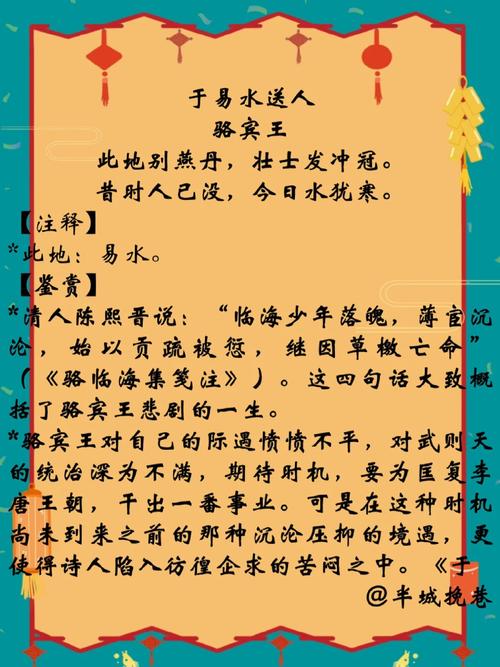 于易水送人
骆宾王
此地别燕丹，壮士发冲冠。
昔时人已没，今日水犹寒。
【注释】
*此地：易水。
【鉴赏】
*清人陈熙晋说：“临海少年落魄，薄宦沉
沦，始以贡疏被愆，继因草檄亡命”
（《骆临海集笺注》）。这四句话大致概
括了骆宾王悲剧的一生。
*骆宾王对自己的际遇愤愤不平，对武则天
的统治深为不满，期待时机，要为匡复李
唐王朝，干出一番事业。可是在这种时机
尚未到来之前的那种沉沦压抑的境遇，更
使得诗人陷入彷徨企求的苦闷之中。《于
@半城挽巷